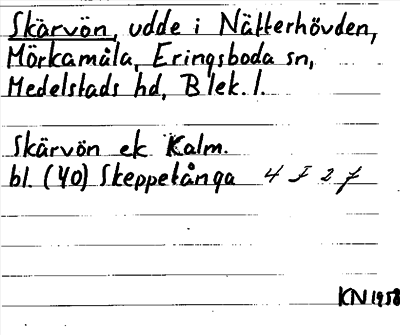 Skärvön, udde i Nätterhövden,
Mörkamåla, Eringsboda sn,
Medelstads hd, Blek. l.
Skärvön ek Kalm.
bl. (40) Skeppetånga 4 I 2 f
KN 1958